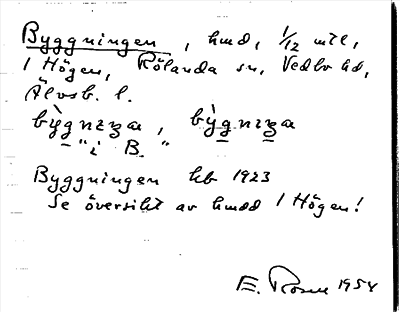 Byggningen, hmd, 1/12 mtl,
1 Högen, Rölanda sn, Vedbo hd,
Älvsb. l.
bỳgnɪŋa, bỳgnɪŋa
"i B."
Byggningen hb 1923
Se översikt av hmdd 1 Högen!
E. Rosell 1954